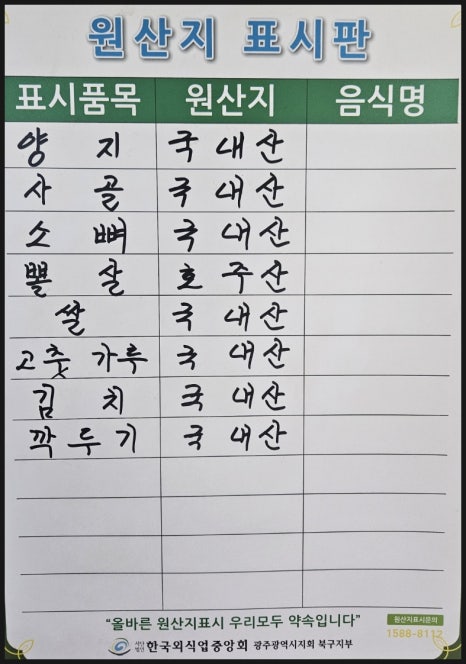 원산지 표시판
표시품목 원산지 음식명
양 지 국 내 산
사 골 국 내 산
소 뼈 국 내 산
뽈 살 호 주 산
쌀 국 내 산
고춧 가루 국 내 산
김 치 국 내 산
깍 두 기 국 내 산
“올바른 원산지표시 우리모두 약속입니다”
원산지표시문의
1588-8112
사단법인 한국외식업중앙회 광주광역시지회 북구지부